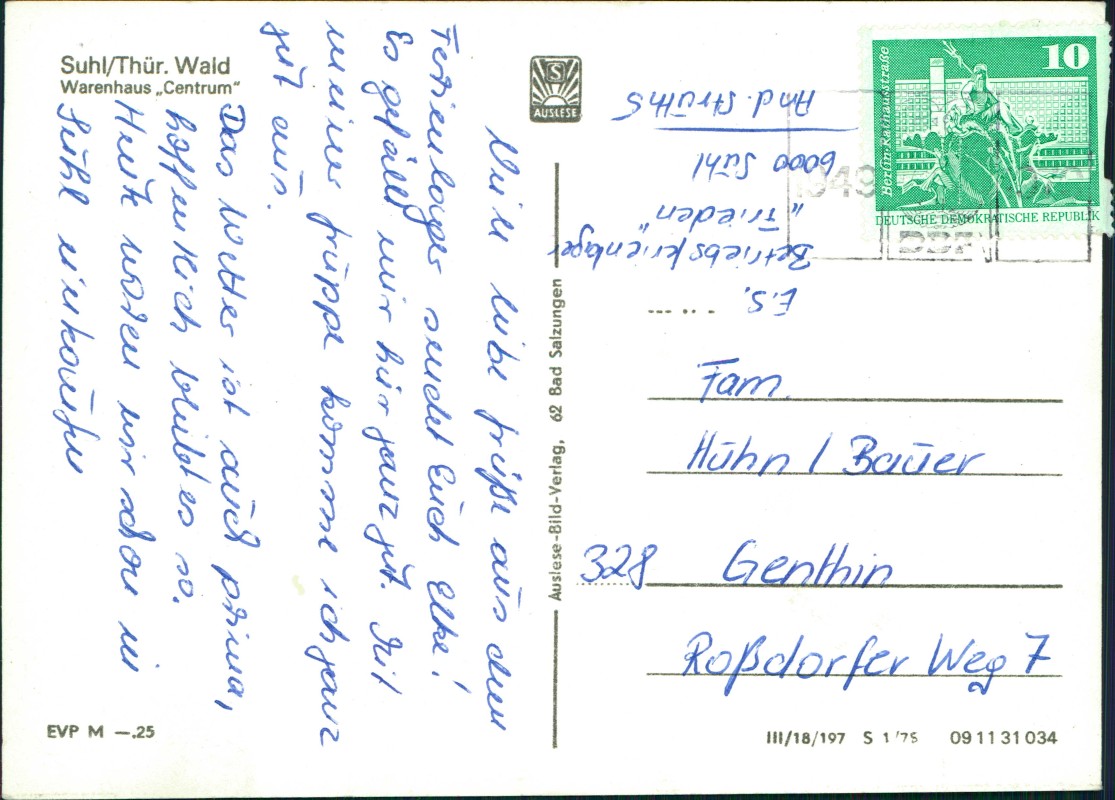 Suhl/Thür. Wald
Warenhaus „Centrum"
Viele liebe Grüße aus dem
Ferienlager sendet Euch Elke!
Es gefällt mir hier ganz gut. Mit
meiner Gruppe komme ich ganz
gut aus.
Das Wetter ist auch prima,
hoffentlich bleibt es so.
Heute waren wir schon in
Suhl einkaufen
EVP M —.25
S
AUSLESE
Auslese-Bild-Verlag, 62 Bad Salzungen
E.S.
Betriebsferienlager
„Frieden"
6000 Suhl
And. Struth 5
10
Berlin · Rathausstraße
DEUTSCHE DEMOKRATISCHE REPUBLIK
1949
DDR
Fam.
Huhn / Bauer
328 Genthin
Roßdorfer Weg 7
III/18/197 S 1/75 09 11 31 034